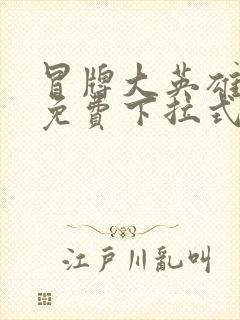 冒牌大英雄
免費下拉式
江戸川亂叫